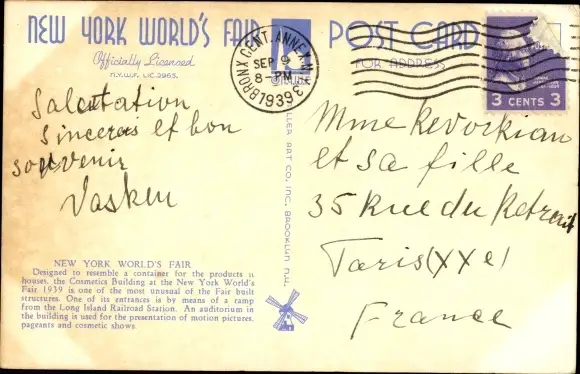 NEW YORK WORLD'S FAIR
Officially Licensed
N.Y.W.F. LIC. 3965.
POST CARD
FOR ADDRESS
BRONX CENT. ANNEX. N.Y.
SEP 9
8 - PM
1939
3 CENTS 3
Salutation
sinceres et bon
souvenir
Vasken
Mme Kevorkian
et sa fille
35 Rue du Retrait
Paris (XX e)
France
ART CO., INC. BROOKLYN N.Y.
NEW YORK WORLD'S FAIR
Designed to resemble a container for the products it
houses, the Cosmetics Building at the New York World's
Fair 1939 is one of the most unusual of the Fair built
structures. One of its entrances is by means of a ramp
from the Long Island Railroad Station. An auditorium in
the building is used for the presentation of motion pictures,
pageants and cosmetic shows.